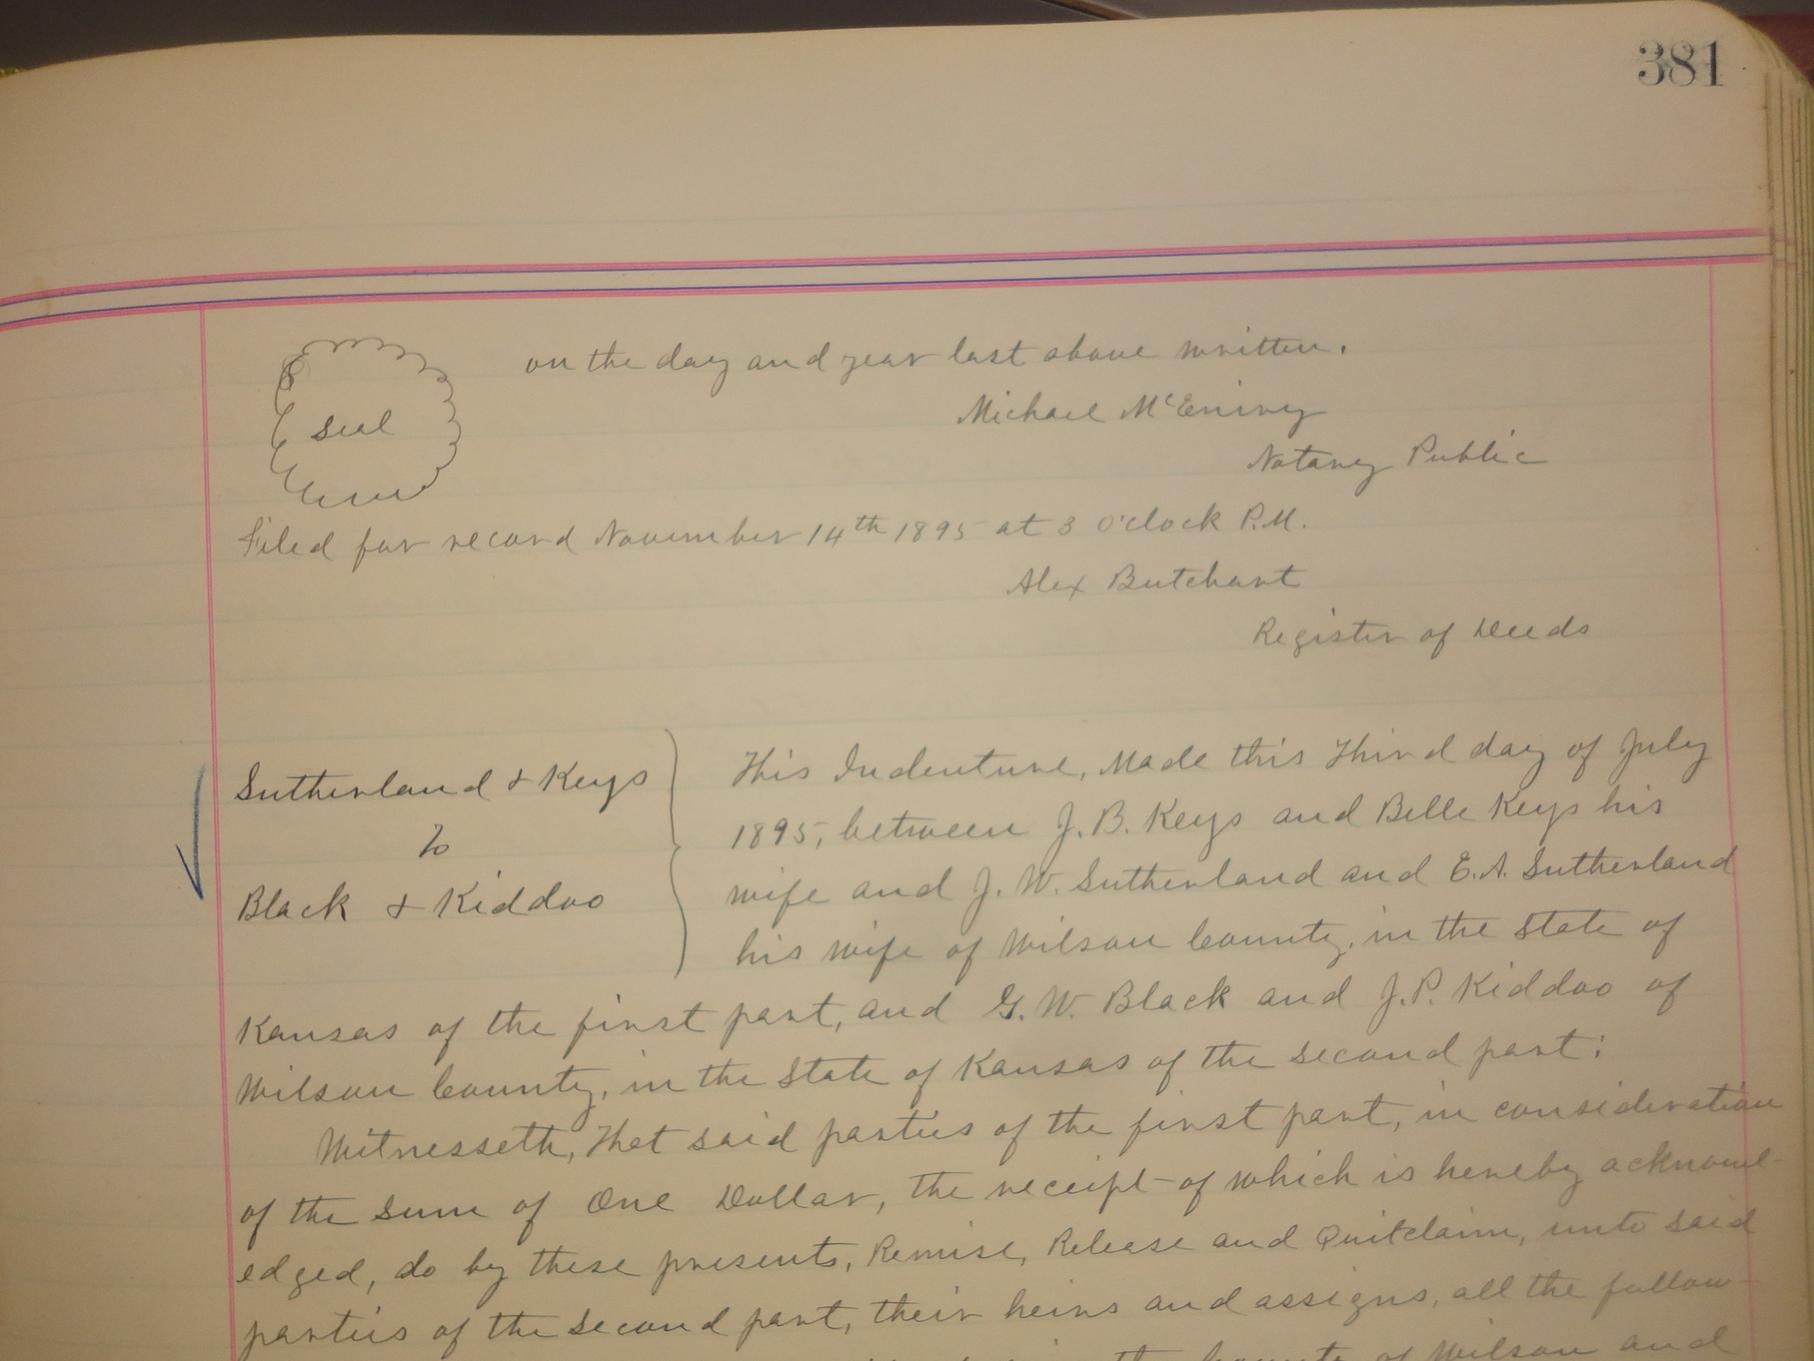 381
on the day and year last above written.
seal
Michael McEniry
Notary Public
Filed for record November 14th 1895 at 3 o'clock P.M.
Alex Butchart
Register of Deeds
Sutherland & Keys
to
Black & Kiddoo
This Indenture, Made this Third day of July
1895, between J. B. Keys and Belle Keys his
wife and J. W. Sutherland and E. A. Sutherland
his wife of Wilson County, in the State of
Kansas of the first part, and G. W. Black and J. P. Kiddoo of
Wilson County, in the State of Kansas of the second part:
Witnesseth, That said parties of the first part, in consideration
of the sum of One Dollar, the receipt of which is hereby acknowl-
edged, do by these presents, Remise, Release and Quitclaim, unto said
parties of the second part, their heirs and assigns, all the follow-
the County of Wilson and